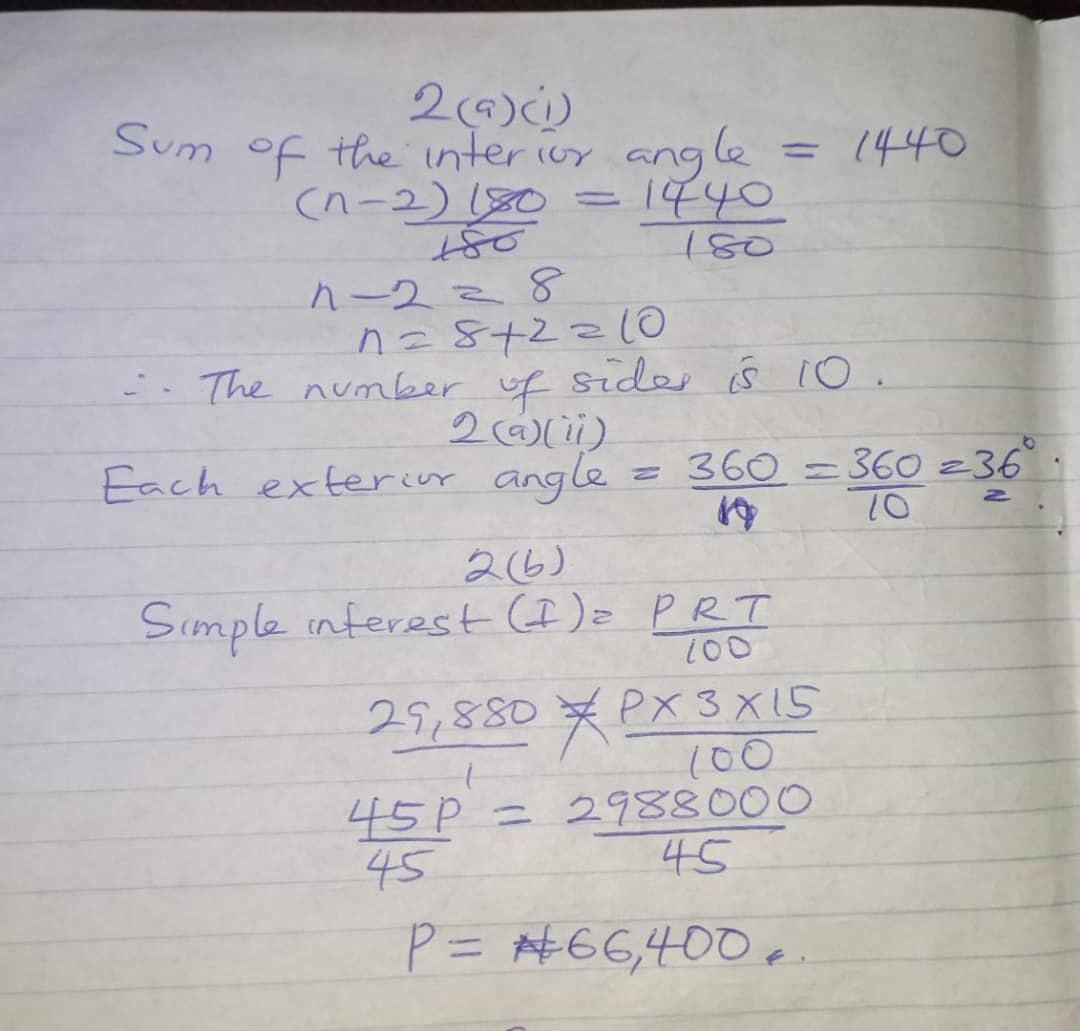 2(a)(i)
Sum of the interior angle = 1440
(n-2) 180 = 1440
180 180
n-2 = 8
n = 8+2 = 10
∴ The number of sides is 10.
2(a)(ii)
Each exterior angle = 360 = 360 = 36°.
10
2(b)
Simple interest (I) = PRT
100
29,880 = P×3×15
1 100
45P = 2988000
45 45
P = ₦66,400.